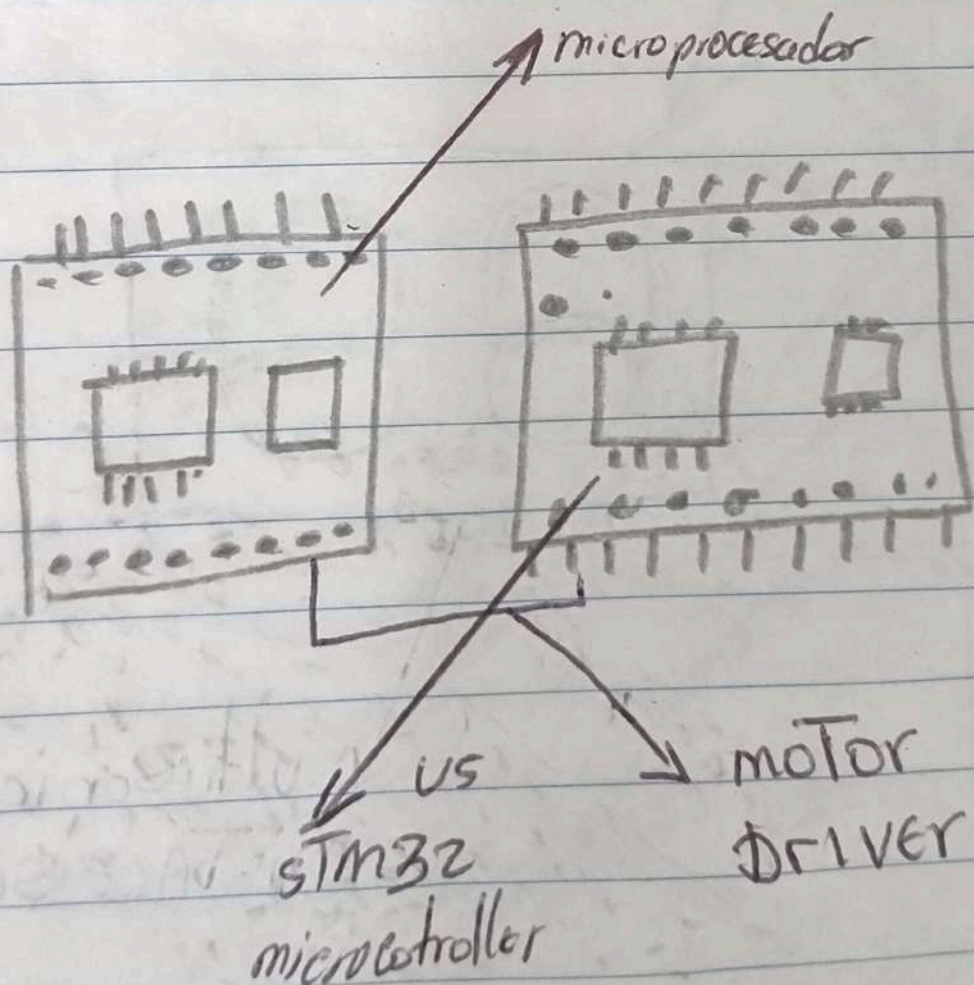 microprocesador
us
sTm32
microcotroller
moTor
DrIVEr